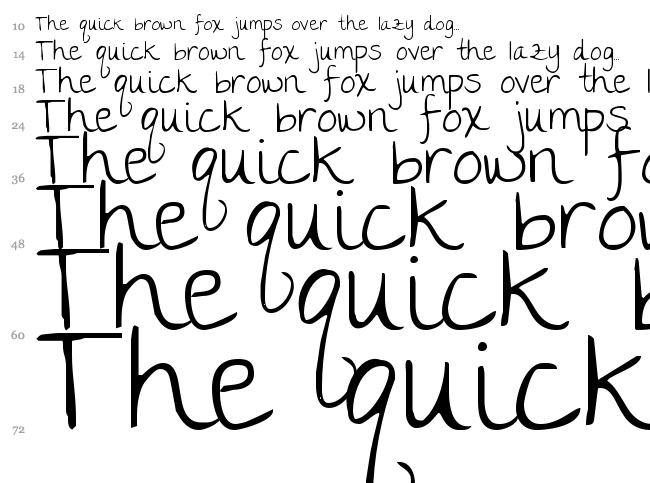 10 The quick brown fox jumps over the lazy dog...
14 The quick brown fox jumps over the lazy dog...
18 The quick brown fox jumps over the l
24 The quick brown fox jumps
36 The quick brown fo
48 The quick brow
60 The quick b
72 The quick